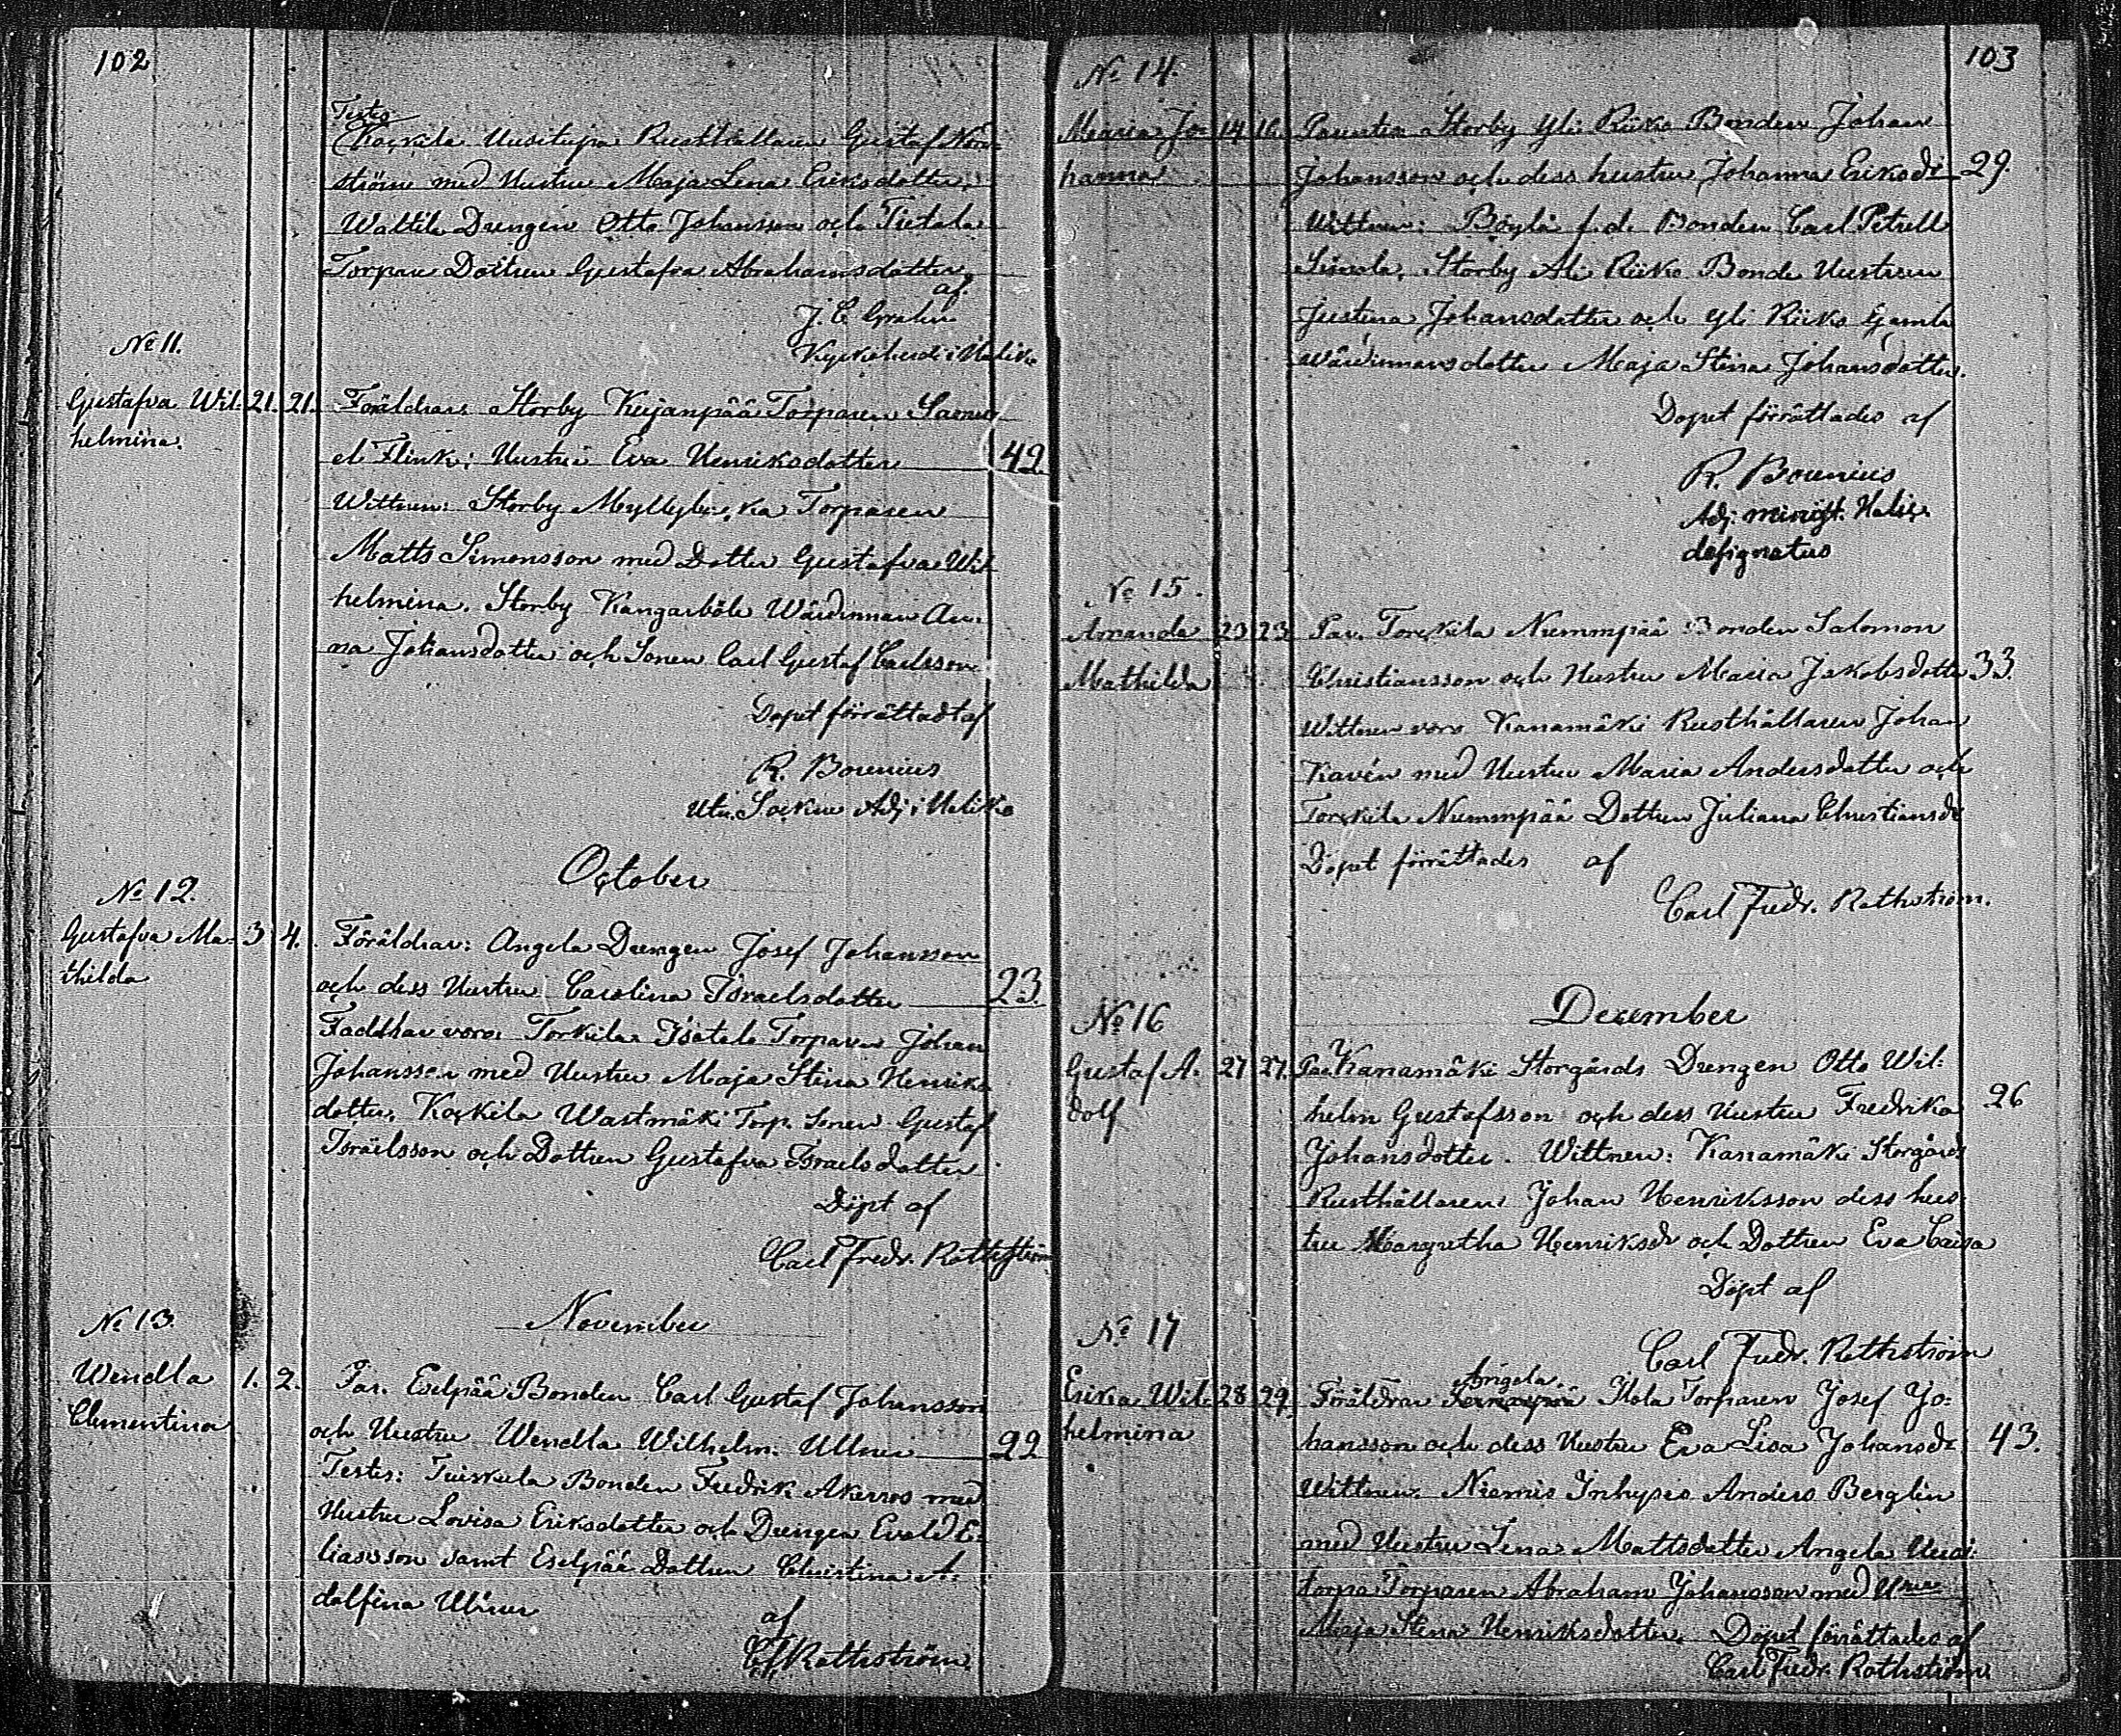 102
Testes
Kockila Uusitupa Rusthållaren Gustaf Nord-
ström med Hustru Maja Lena Eriksdotter,
Wallila Drengen Otto Johansson och Tietala
Torpare Dottren Gustafva Abrahamsdotter
af
J. E. Grahn
Kyrkoherde i Haliko
No 11.
Gustafva Wil- 21. 21. Föräldrar Storby Kujanpää Torparen Samu-
helmina.
el Flink; Hustru Eva Henriksdotter 42
Wittnen: Storby Myllyby Torparen
Matts Simonsson med Dotter Gustafva Wil-
helmina. Storby Kangarböle Wärdinnan An-
na Johansdotter och Sonen Carl Gustaf Carlsson
Dopet förrättadt af
R. Borenius
Utn. Socken Adj i Haliko
October
No 12.
Gustafva Ma- 3 4. Föräldrar: Angela Drengen Josef Johansson
thilda
och dess Hustru Carolina Israelsdotter 23.
Faddrar voro: Torkila Isotalo Torparen Johan
Johansson med Hustru Maja Stina Henriks
dotter, Kockila Wastmäki Torp. Sonen Gustaf
Israelsson och Dottren Gustafva Israelsdotter
Döpt af
Carl Fredr. Rothström
No 13.
November
Wendla 1. 2. Par. Eselpää Bonden Carl Gustaf Johansson
Clementina
och Hustru Wendla Wilhelm. Ullner 22
Testes: Tuiskula Bonden Fredrik Akerros med
Hustru Lovisa Eriksdotter och Drengen Evald E-
liasson samt Eselpää Dottren Christina A-
dolfina Ullner
af
C. F. Rothström
103
No 14.
Maria Jo- 14 16. Parentes Storby Yli Riiko Bonden Johan
hanna
Johansson och dess hustru Johanna Eriksdr 29.
Wittnen: Böylä f.d. Bonden Carl Petrell
Simola, Storby Ali Riiko Bonde Hustrun
Justina Johansdotter och Yli Riiko Gamla
Wärdinnansdotter Maja Stina Johansdotter.
Dopet förrättades af
R. Borenius
Adj. minist. Halic.
designatus
No 15.
Amanda 23 23 Par. Torckila Nummpää Bonden Salomon
Mathilda
Christiansson och Hustru Maria Jakobsdotter 33.
Wittnen voro Kanamäki Rusthållaren Johan
Kavén med Hustru Maria Andersdotter och
Torckila Nummpää Dottren Juliana Christiansdr
Dopet förrättades af
Carl Fredr. Rothström.
December
No 16
Gustaf A- 27 27. Par Kanamäki Storgårds Drengen Otto Wil-
dolf
helm Gustafsson och dess Hustru Fredrika 26
Johansdotter. Wittnen: Kanamäki Storgårds
Rusthållaren Johan Henriksson dess hus-
tru Margretha Henriksdr och Dottren Eva Caisa
Döpt af
Carl Fredr. Rothström
No 17
Angela
Erika Wil- 28 29. Föräldrar Ilola Torparen Josef Jo-
helmina
hansson och dess Hustru Eva Lisa Johansdr 43.
Wittnen. Niemis Inhyses Anders Berglin
med Hustru Lena Mattsdotter Angela Uusi-
torpa Torparen Abraham Johansson med Hru
Maja Stina Henriksdotter. Dopet förrättades af
Carl Fredr. Rothström